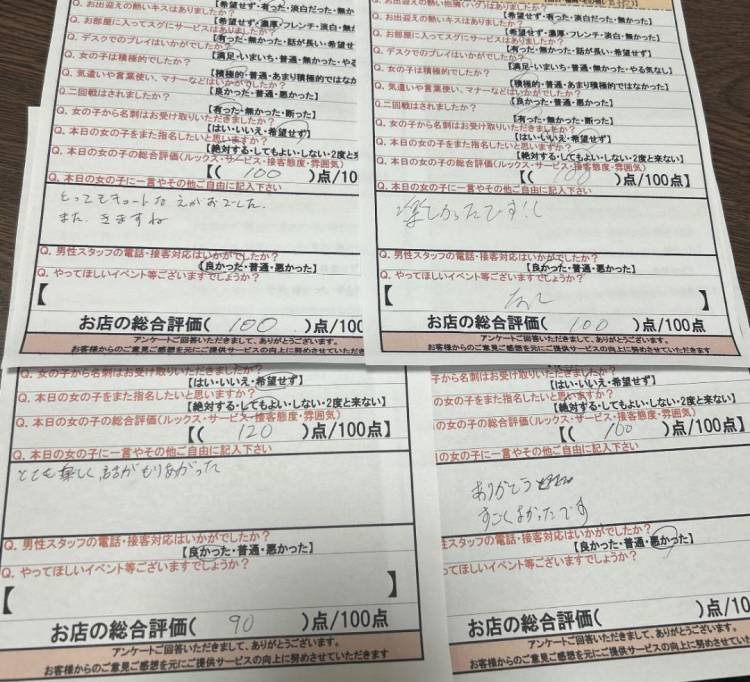 Q. お出迎えの熱いキスはありましたか?
【希望せず・有った・淡白だった・無か
Q. お部屋に入ってスグにサービスはありましたか?
【希望せず・濃厚・フレンチ・淡白・無
Q. デスクでのプレイはいかがでしたか?
【有った・無かった・話が長い・希望せず
Q. 女の子は積極的でしたか?
【満足・いまいち・普通・無かった・やる
Q. 気遣いや言葉使い、マナーなどはいかがでしたか?
【積極的・普通・あまり積極的ではなか
Q.二回戦はされましたか?
【良かった・普通・悪かった】
【有った・無かった・断った】
Q. 女の子から名刺はお受け取りいただきましたか?
【はい・いいえ・希望せず】
Q. 本日の女の子をまた指名したいと思いますか?
【絶対する・してもよい・しない・2度と来
Q. 本日の女の子の総合評価(ルックス・サービス・接客態度・雰囲気)
【( 100 )点/10
Q. 本日の女の子に一言やその他ご自由に記入下さい
とってもキュートなえがおでした
また きますね
Q. 男性スタッフの電話・接客対応はいかがでしたか?
【良かった・普通・悪かった】
Q. やってほしいイベント等ございますでしょうか?
【
お店の総合評価( 100 )点/100
アンケートご回答いただきまして、ありがとうございます。
お客様からのご意見ご感想を元にご提供サービスの向上に努めさせていただ
Q. お出迎えの熱い抱擁(ハグ)はありましたか?
Q. お出迎えの熱いキスはありましたか?
【希望せず・有った・淡白だった・無かった】
Q. お部屋に入ってスグにサービスはありましたか?
【希望せず・濃厚・フレンチ・淡白・無かった】
Q. デスクでのプレイはいかがでしたか?
【有った・無かった・話が長い・希望せず】
Q. 女の子は積極的でしたか?
【満足・いまいち・普通・無かった・やる気なし】
Q. 気遣いや言葉使い、マナーなどはいかがでしたか?
【積極的・普通・あまり積極的ではなかった】
Q.二回戦はされましたか?
【良かった・普通・悪かった】
【有った・無かった・断った】
Q. 女の子から名刺はお受け取りいただきましたか?
【はい・いいえ・希望せず】
Q. 本日の女の子をまた指名したいと思いますか?
【絶対する・してもよい・しない・2度と来ない】
Q. 本日の女の子の総合評価(ルックス・サービス・接客態度・雰囲気)
【( 100 )点/100点】
Q. 本日の女の子に一言やその他ご自由に記入下さい
楽しかったです!!
Q. 男性スタッフの電話・接客対応はいかがでしたか?
【良かった・普通・悪かった】
Q. やってほしいイベント等ございますでしょうか?
【 なし 】
お店の総合評価( 100 )点/100
アンケートご回答いただきまして、ありがとうございます。
お客様からのご意見ご感想を元にご提供サービスの向上に努めさせていただきます
Q. 女の子から名刺はお受け取りいただきましたか?
【はい・いいえ・希望せず】
Q. 本日の女の子をまた指名したいと思いますか?
【絶対する・してもよい・しない・2度と来ない】
Q. 本日の女の子の総合評価(ルックス・サービス・接客態度・雰囲気)
【( 120 )点/100点】
Q. 本日の女の子に一言やその他ご自由に記入下さい
とても楽しく、話がもりあがった
Q. 男性スタッフの電話・接客対応はいかがでしたか?
【良かった・普通・悪かった】
Q. やってほしいイベント等ございますでしょうか?
【 】
お店の総合評価( 90 )点/100点
アンケートご回答いただきまして、ありがとうございます。
お客様からのご意見ご感想を元にご提供サービスの向上に努めさせていただきます
子から名刺はお受け取りいただきましたか?
【はい・いいえ・希望せず】
の女の子をまた指名したいと思いますか?
【絶対する・してもよい・しない・2度と来ない】
の女の子の総合評価(ルックス・サービス・接客態度・雰囲気)
【( 100 )点/100点】
の女の子に一言やその他ご自由に記入下さい
ありがとう
すごくよかったです
スタッフの電話・接客対応はいかがでしたか?
【良かった・普通・悪かった】
てほしいイベント等ございますでしょうか?
お店の総合評価( )点/10
アンケートご回答いただきまして、ありがとうございます。
お客様からのご意見ご感想を元にご提供サービスの向上に努めさせていた